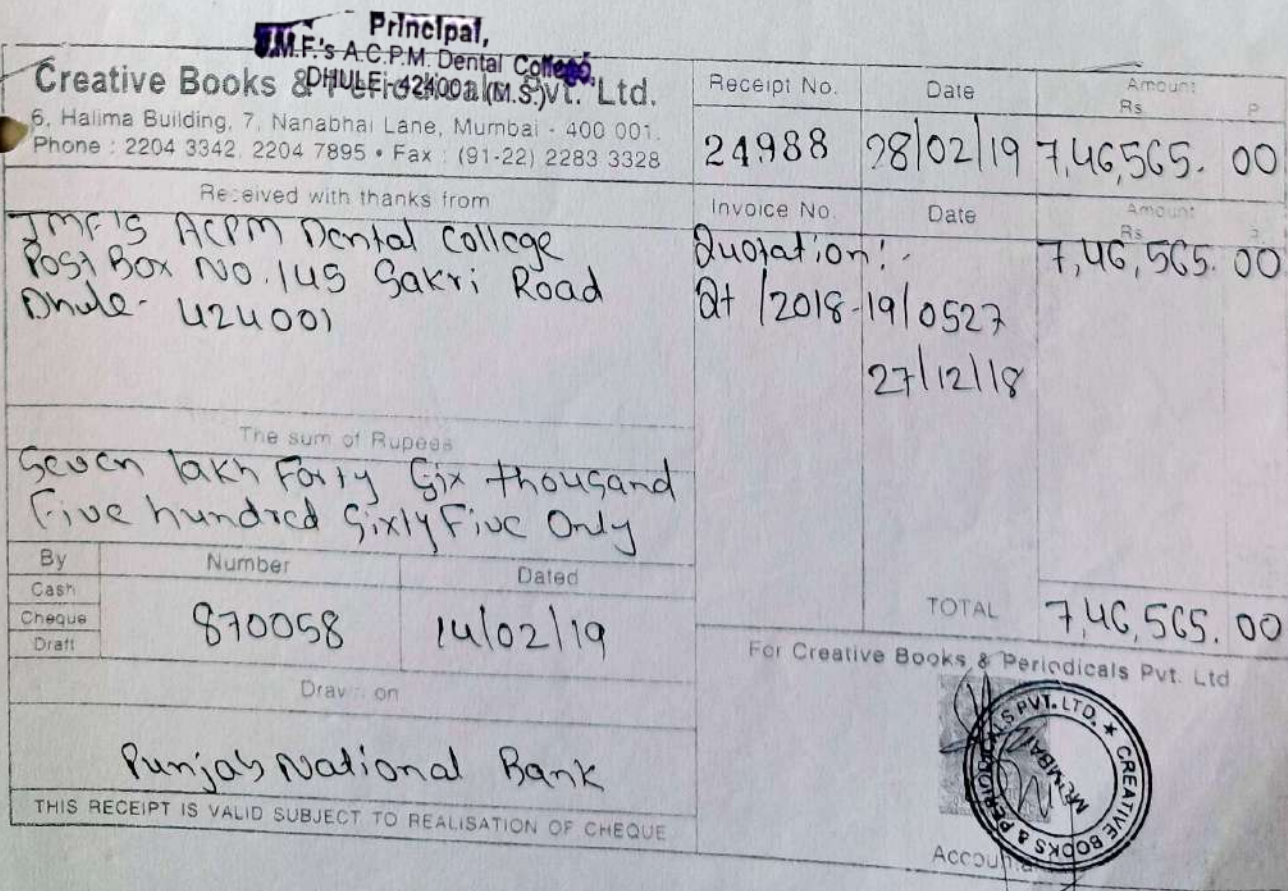 Principal,
J.M.F.'s A.C.P.M. Dental College,
DHULE-424001 (M.S.)
Creative Books & Periodicals Pvt. Ltd.
6, Halima Building, 7, Nanabhai Lane, Mumbai - 400 001.
Phone : 2204 3342, 2204 7895 • Fax : (91-22) 2283 3328
Receipt No. Date Amount
Rs. P.
24988 28/02/19 7,46,565. 00
Received with thanks from
JMF'S ACPM Dental College
Post Box No. 145 Sakri Road
Dhule- 424001
Invoice No. Date Amount
Rs. P.
Quotation:- 7,46,565. 00
Qt /2018-19/0527
27/12/18
The sum of Rupees
Seven lakh Forty Six thousand
Five hundred Sixty Five Only
By Number Dated
Cash
Cheque 870058 14/02/19
Draft
TOTAL 7,46,565. 00
Drawn on
Punjab National Bank
THIS RECEIPT IS VALID SUBJECT TO REALISATION OF CHEQUE
For Creative Books & Periodicals Pvt. Ltd
CREATIVE BOOKS & PERIODICALS PVT. LTD. ★
MUMBAI